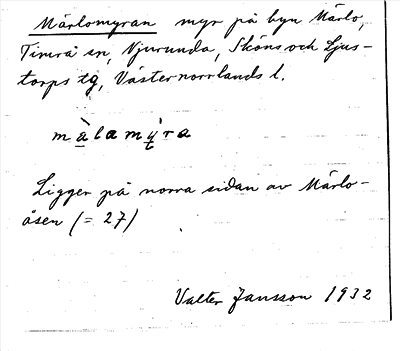 Märlomyran myr på byn Märlo,
Timrå sn, Njurunda, Sköns och Ljus-
torps tg, Västernorrlands l.
Ligger på norra sidan av Märlo-
åsen (= 27)
Valter Jansson 1932